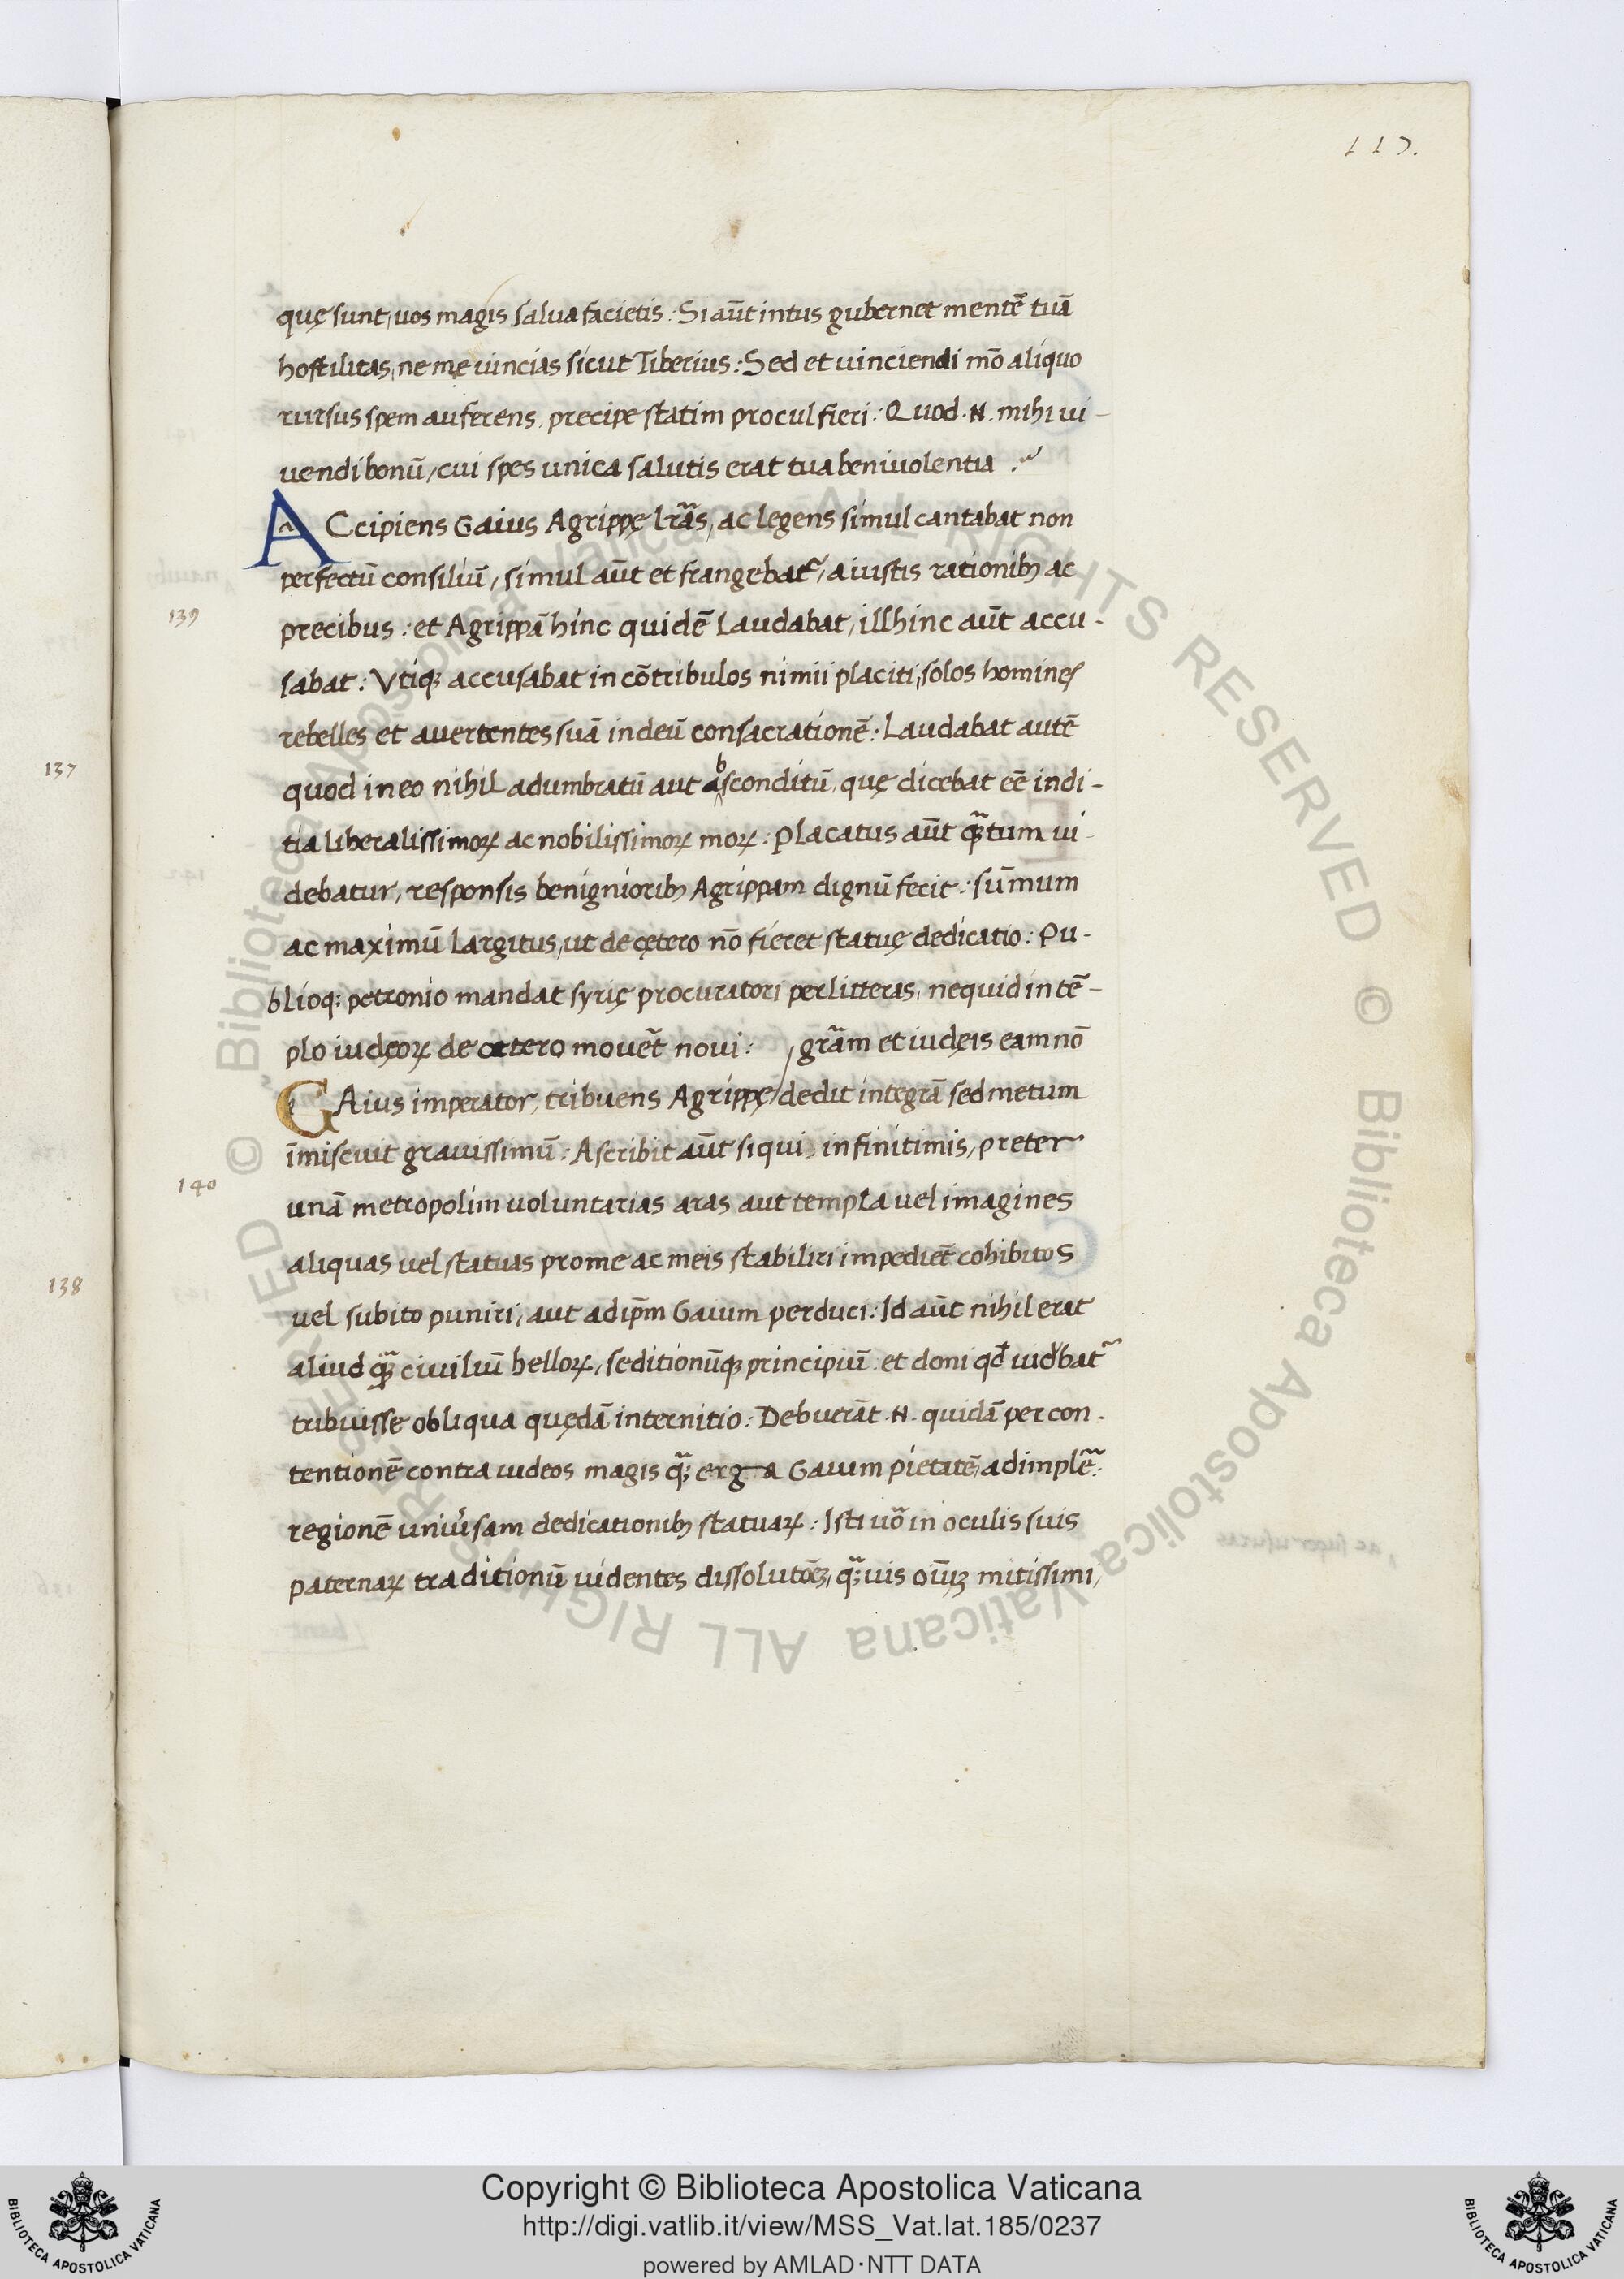 117.
quę sunt, uos magis salua facietis: Si aūt intus gubernet mentē tuā
hostilitas, ne mę uincias sicut Tiberius: Sed et uinciendi mō aliquo
rursus spem auferens, precipe statim procul fieri: Quod .N. mihi ui-
uendi bonū, cui spes unica salutis erat tua beniuolentia.
ACcipiens Gaius Agrippę lr̄as, ac legens simul cantabat non
perfectū consiliū, simul aūt et frangebat᷑, a iustis rationibꝫ ac
139
precibus: et Agrippā hinc quidē Laudabat, illhinc aūt accu-
sabat: Vtiqꝫ accusabat in cōtribulos nimii placiti, solos homines
rebelles et auertentes suā in deū consacrationē: Laudabat autē
137
quod in eo nihil adumbratū aut absconditū, quę dicebat eē indi-
tia liberalissimoꝝ ac nobilissimoꝝ moꝝ: Placatus aūt qꝫ̄tum ui-
debatur, responsis benignioribꝫ Agrippam dignū fecit: sūmum
ac maximū Largitus, ut de cętero nō fieret statuę dedicatio: Pu-
blioqꝫ petronio mandat syrię procuratori per litteras, nequid in tē-
plo iudęoꝝ de cętero mouet᷑ noui: / gr̄am et iudęis eam nō
GAius imperator, tribuens Agrippę/ dedit integrā sed metum
īmiscuit grauissimū: Ascribit aūt siqui, in finitimis, preter
140
unā metropolim uoluntarias aras aut templa uel imagines
aliquas uel statuas pro me ac meis stabiliri impediet᷑ cohibitos
138
uel subito puniri, aut ad ip̄m Gaium perduci: Id aūt nihil erat
aliud qꝫ̄ ciuiliū belloꝝ, seditionūqꝫ principiū et doni qd̄ uidebat᷑
tribuisse obliqua quędā internitio: Debuerāt .N. quidā per con-
tentionē contra iudeos magis qꝫ̄ erga Gaium pietatē, adimplē:
regionē uniūsam dedicationibꝫ statuaꝝ: Isti uō in oculis suis
paternaꝝ traditionū uidentes dissolutōēꝫ, qꝫ̄uis oīuꝫ mitissimi,
Copyright © Biblioteca Apostolica Vaticana
http://digi.vatlib.it/view/MSS_Vat.lat.185/0237
powered by AMLAD·NTT DATA
BIBLIOTECA APOSTOLICA VATICANA
BIBLIOTECA APOSTOLICA VATICANA
© Biblioteca Apostolica Vaticana ALL RIGHTS RESERVED © Biblioteca Apostolica Vaticana ALL RIGHTS RESERVED